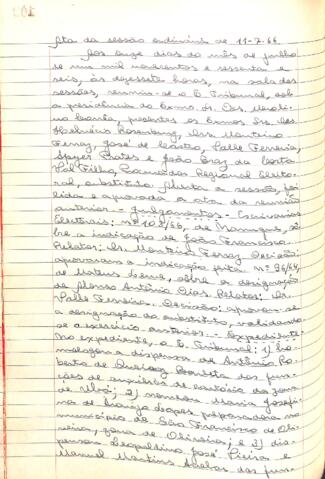 Ata da sessão ordinária de 11-7-66
Aos onze dias do mês de julho
de um mil novecentos e sessenta e
seis, às dezessete horas, na sala das
sessões, reuniu-se o E. Tribunal, sob
a presidência do Exmo. Sr. Des.
presentes os Exmos. Srs. Des.
Rosenburg, Drs. Martins
Ferraz, José de Castro, Valle Ferreira,
Prates e João Braz da Costa
Val Filho, Regional Eleito-
ral, substituto. Aberta a sessão, foi
lida e aprovada a ata da reunião
anterior. - Julgamentos - Escrivanias
Eleitorais: nº 102/66, de sô-
bre a indicação de João Francisco.
Relator: Dr. Martins Ferraz. Decisão:
aprovaram a indicação feita. nº 96/64,
de Mateus Leme, sobre a designação
de Afonso Antônio Dias. Relator: Dr.
Valle Ferreira. Decisão: aprovou-se
a designação do substituto, validando-
se o exercício anterior. - Expediente:
No expediente, o E. Tribunal: 1) ho-
mologou a dispensa de Antônio Ro-
berto de Queiroz das fun-
ções de auxiliar de cartório da zona
de Ubá; 2) nomeou Maria Josefi-
na de Araujo Lopes preparadora no
município de São Francisco de Oli-
veira, zona de Oliveira; e 2) dis-
pensou Leopoldino José Vieira e
Manuel Martins das fun-